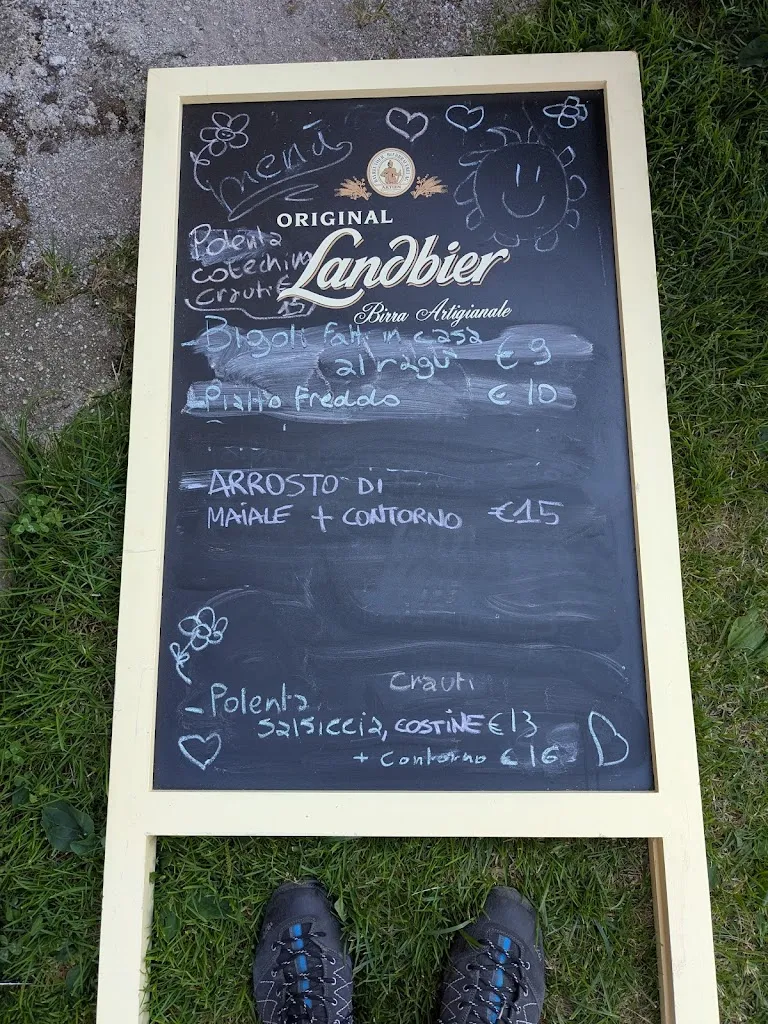 menù
ORIGINAL
Landbier
Birra Artigianale
Polenta
cotechino
crauti
15
Bigoli fatti in casa
al ragù € 9
- Piatto Freddo € 10
- ARROSTO DI
MAIALE + CONTORNO €15
crauti
- Polenta
salsiccia, COSTINE €13
+ contorno € 16